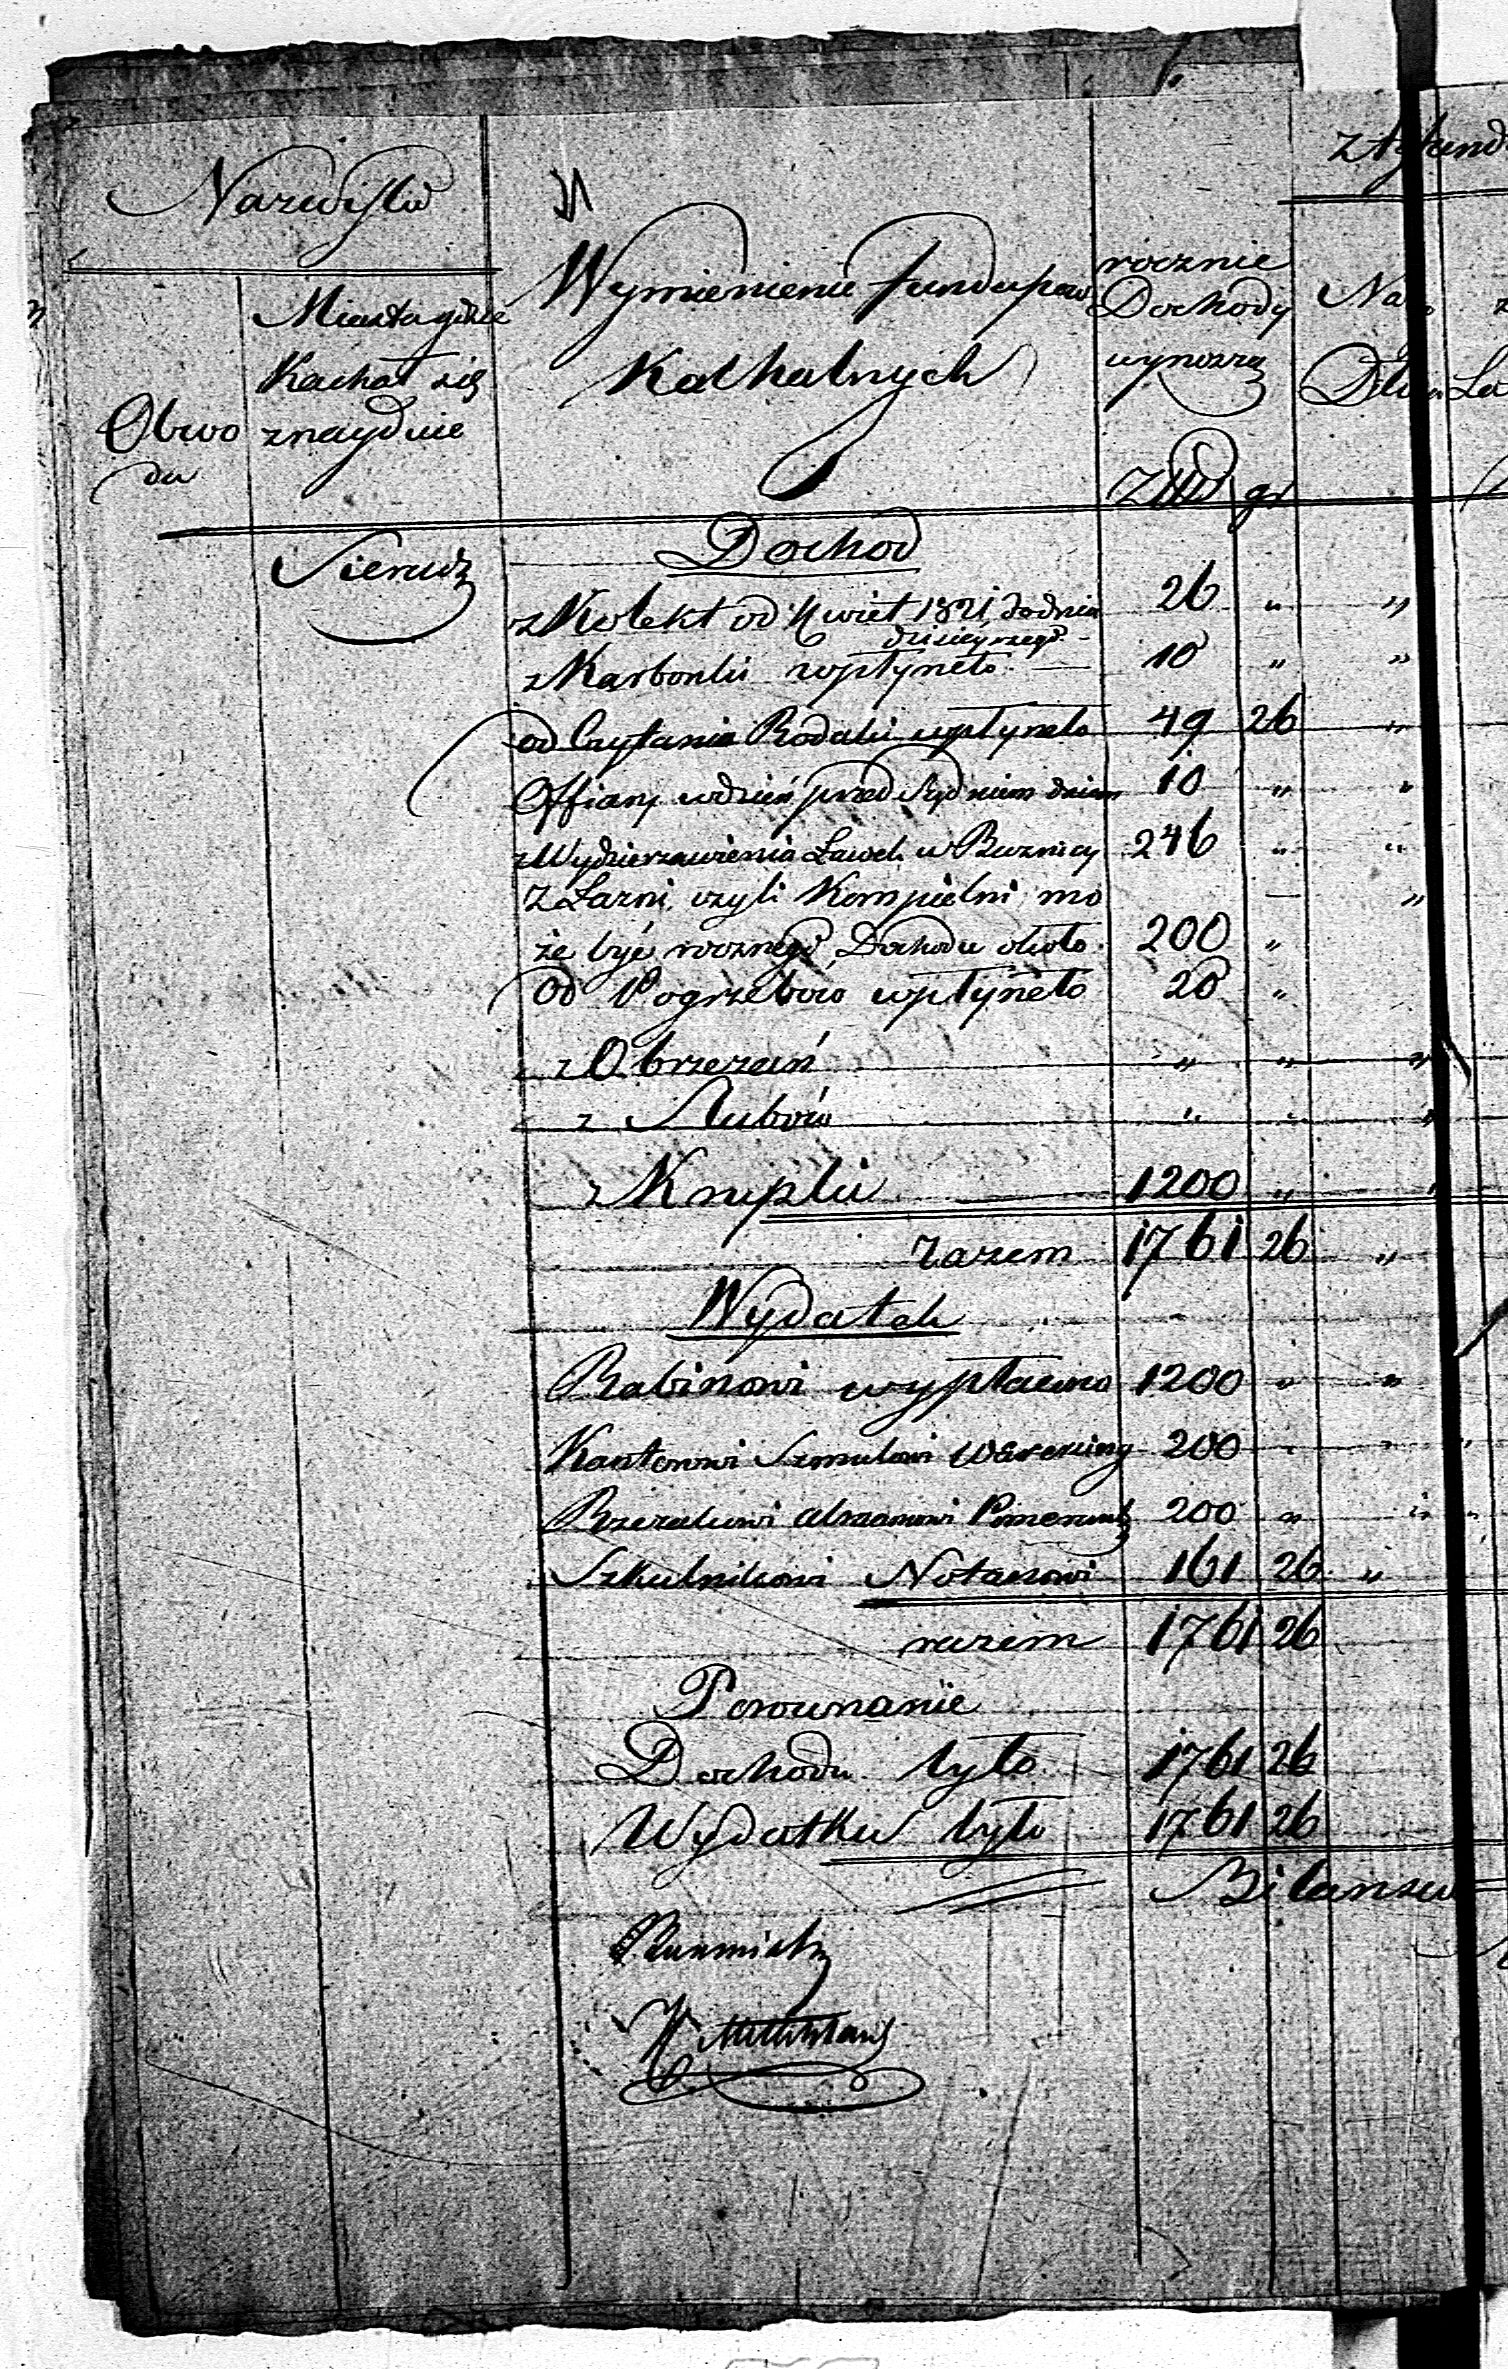 Nazwisko
Obwo
du
Miasta gdzie
Kachał się
znayduie
Wymienienie funduszow
Kalhalnych
rocznie
Dochody
wynoszą
Złł gr
Sieradz
Dochod
z Kolekt od 4 wiet 1821 do dnia 26 " "
dzisieyszego
z Karbonki wpłyneło 10 " "
od Czytania Rodału wpłyneło 49 26 "
Offiary wdzień przed Sądnem dniem 10 " "
z Wydzierzawienia Ławek w Buznicy 246 " "
Z Łazni, czyli Kompielni mo "
że być rocznego Dochodu około 200 "
Od Pogrzebow wpłyneło 20 "
z Obrzezań " " "
z Slubów " " "
z Krupki 1200 " "
Razem 1761 26 "
Wydatek
Rabinowi wypłacono 1200 " "
Kantorowi Szmulowi 200
Rzezakowi Abramowi 200 " "
Szkulnikowi 161 26 "
razem 1761 26
Porownanie
Dochodu było 1761 26
Wydatku było 1761 26
Bilansu